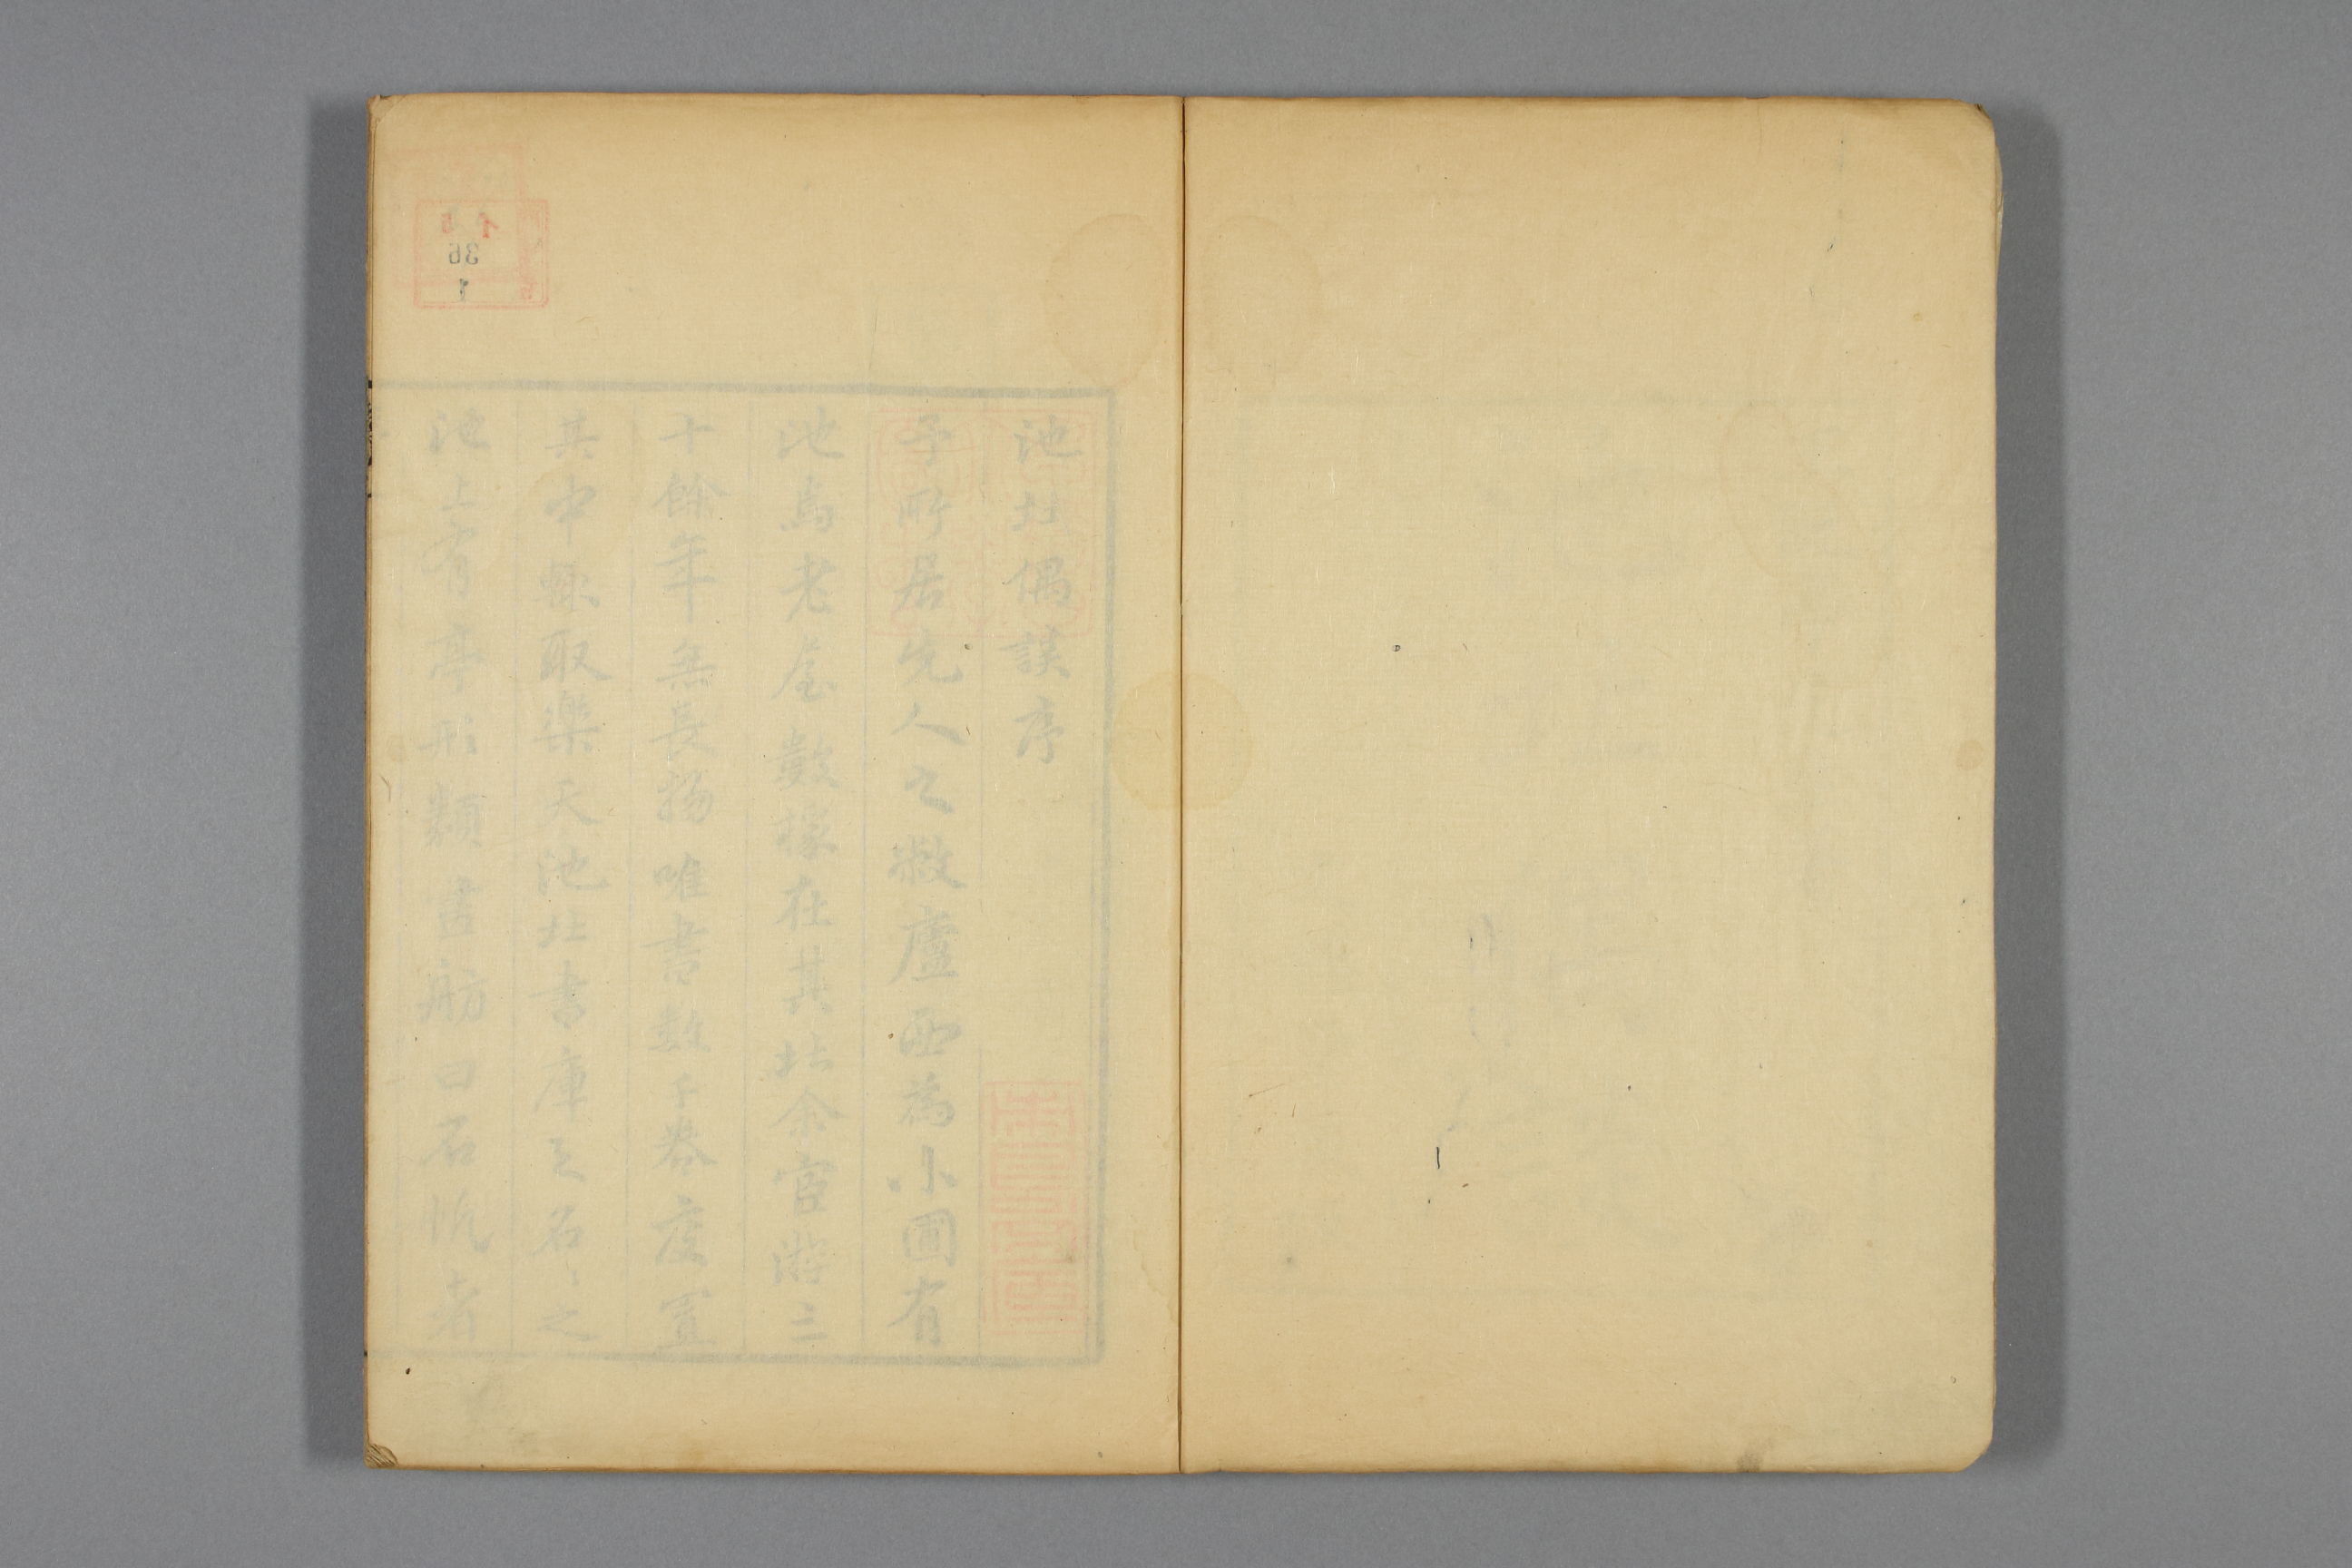 池北偶談序
予所居先人之敝廬西為小圃有
池焉老屋數椽在其北余宦游三
十餘年無長物唯書數千卷庋置
其中輒取樂天池北書庫之名名之
池上有亭形類畫舫曰石帆者
45
36
1